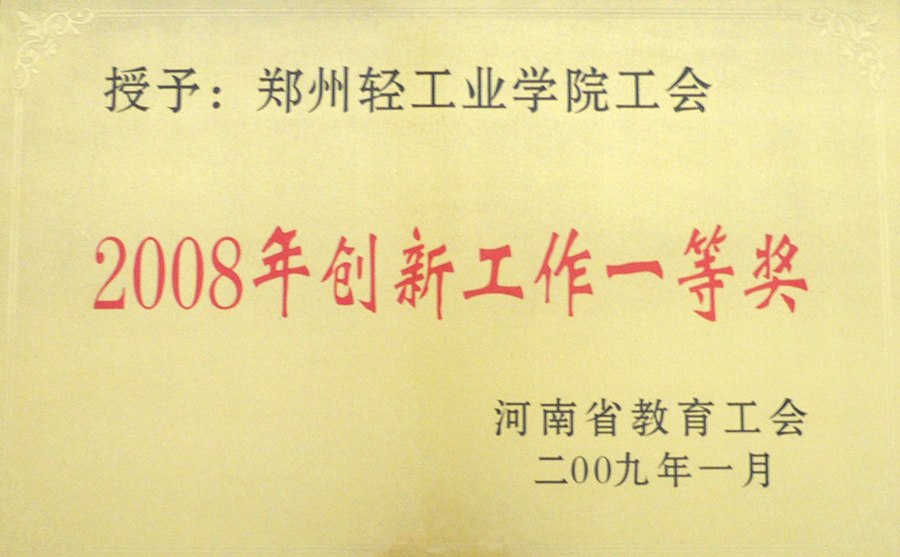 授予：郑州轻工业学院工会
2008年创新工作一等奖
河南省教育工会
二00九年一月